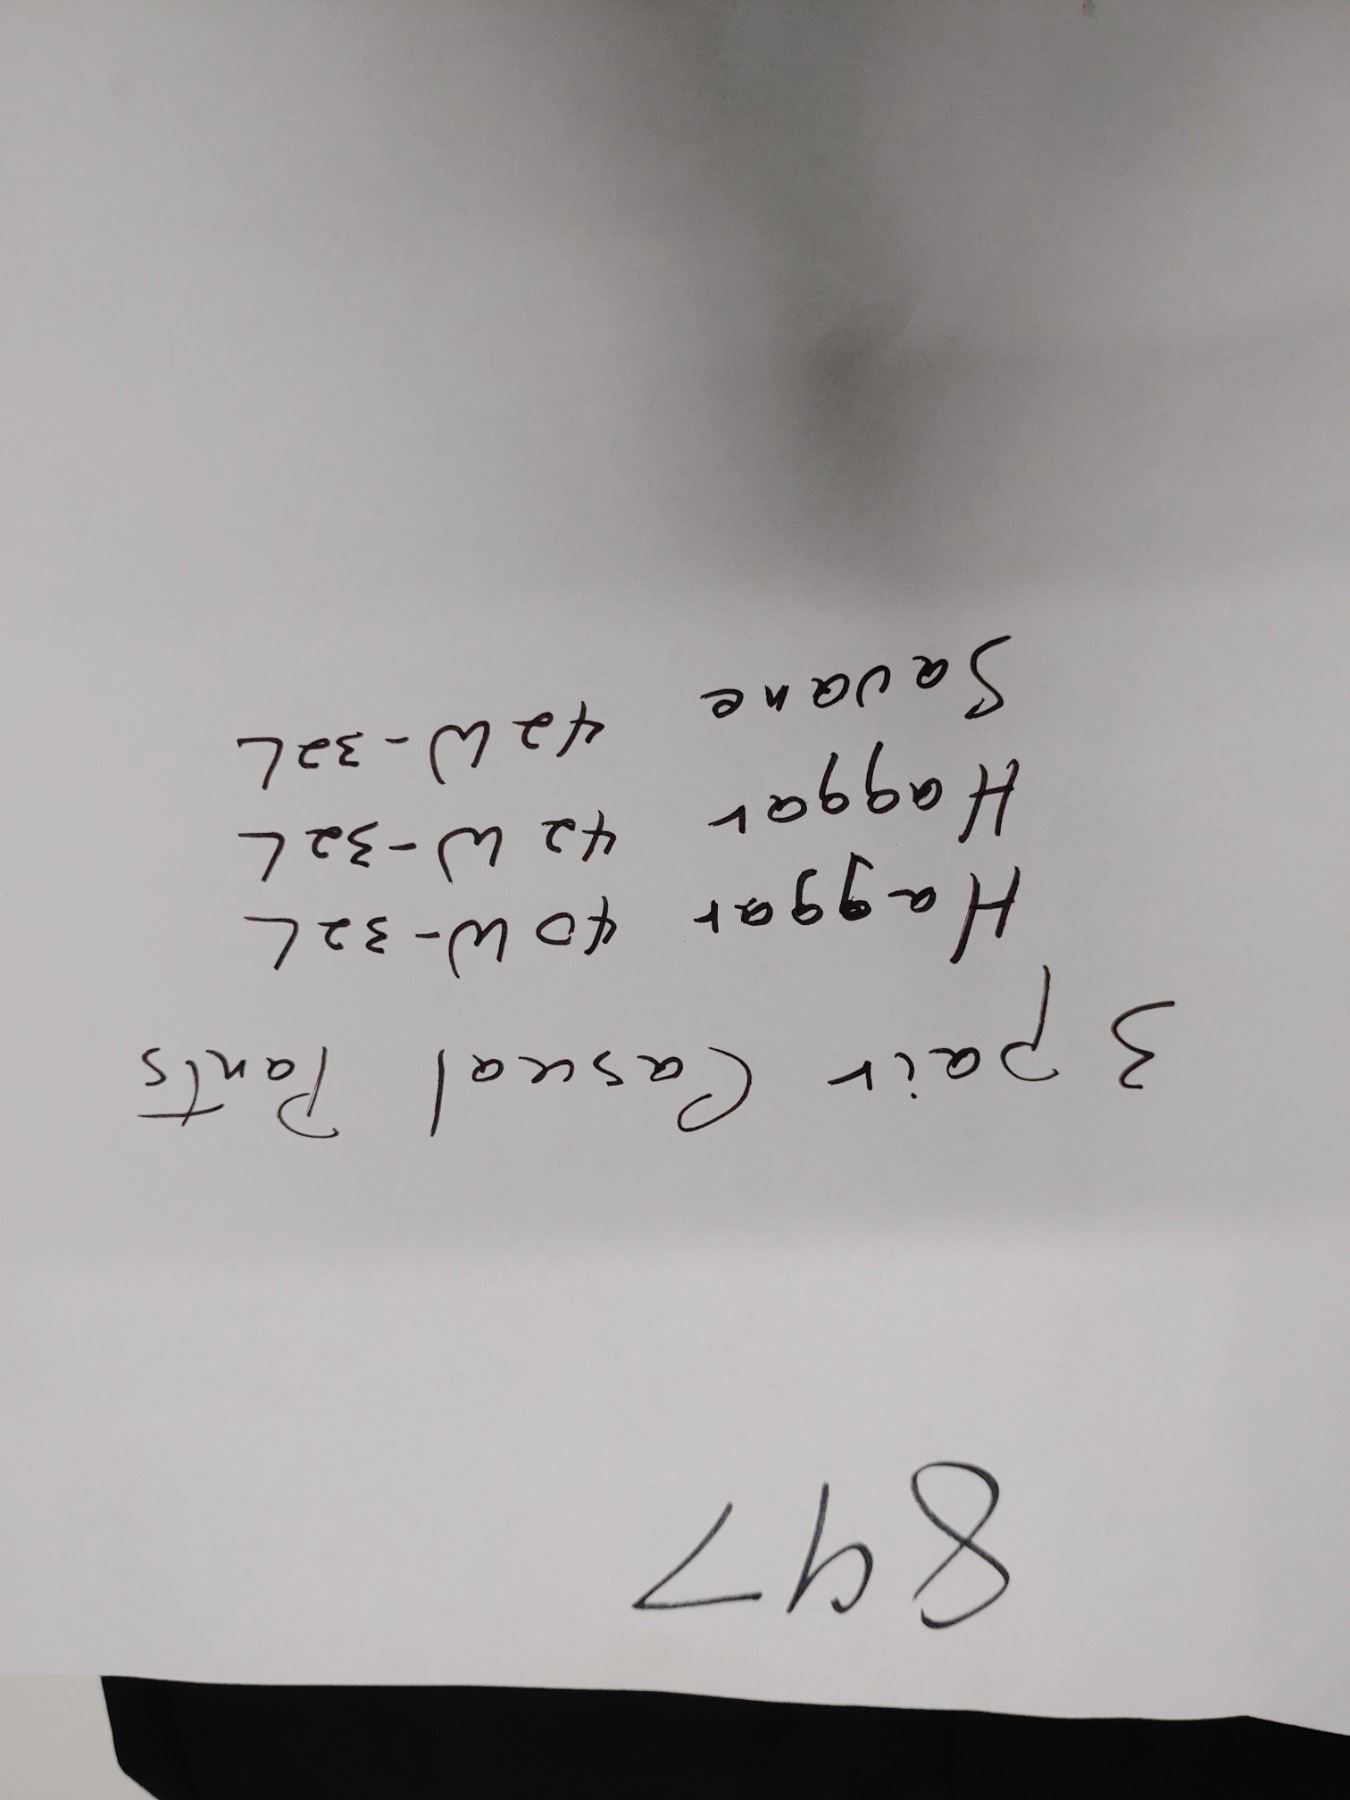 897
3 pair Casual Pants
Haggar 40W-32L
Haggar 42W-32L
Savane 42W-32L